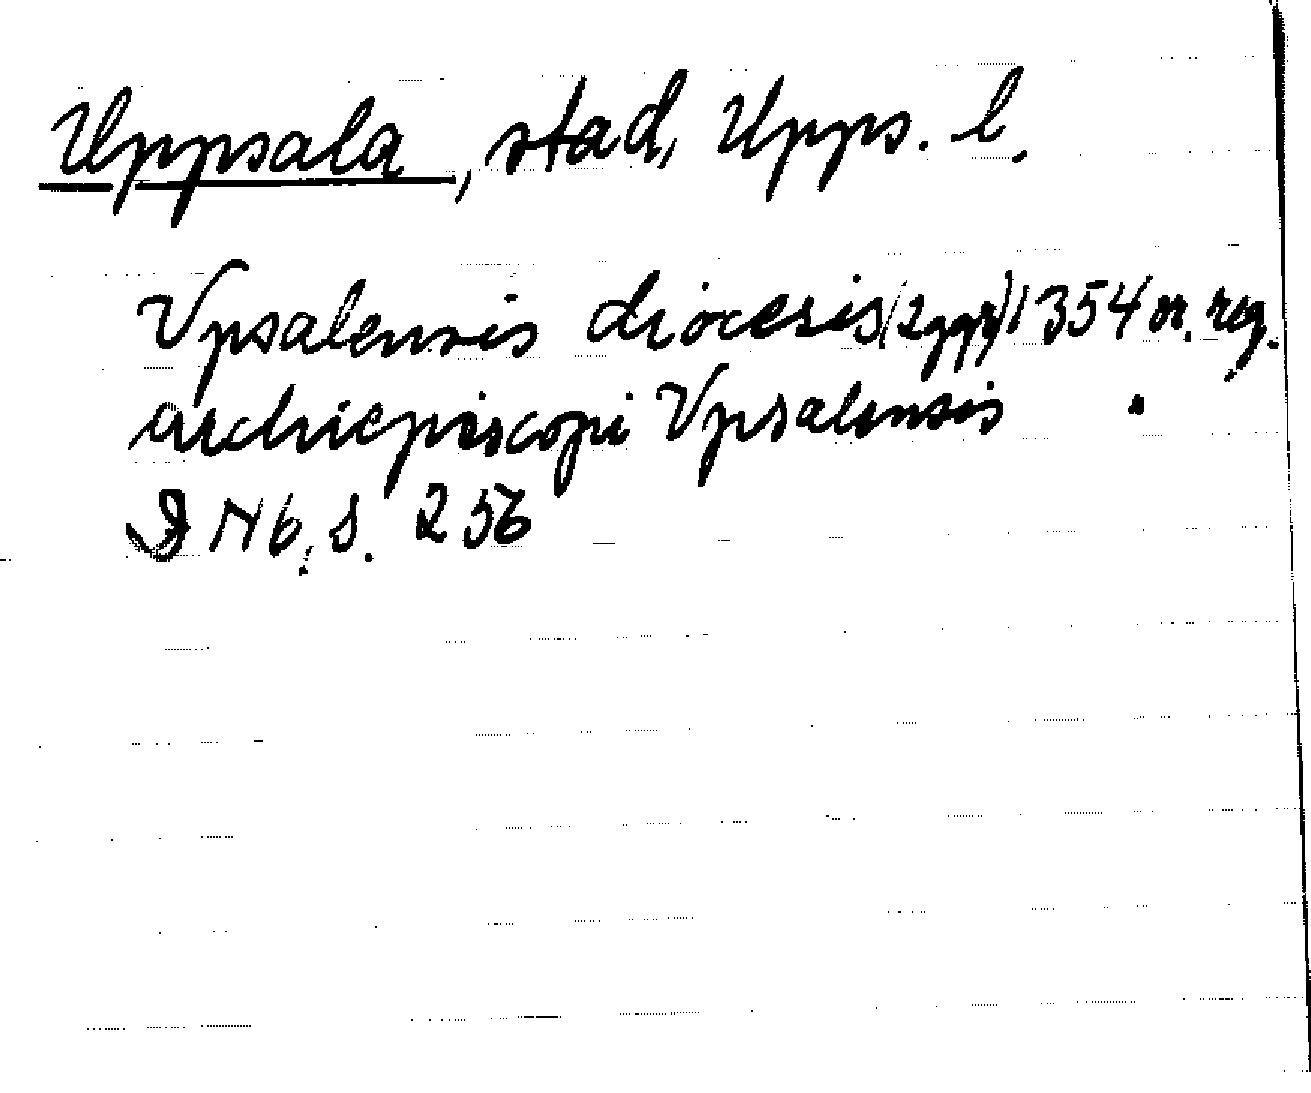 Uppsala, stad, Upps. l.
Vpsalensis diocesis (2 ggr) 1354 or. reg.
archiepiscopi Vpsalensis
D Nb, s. 256